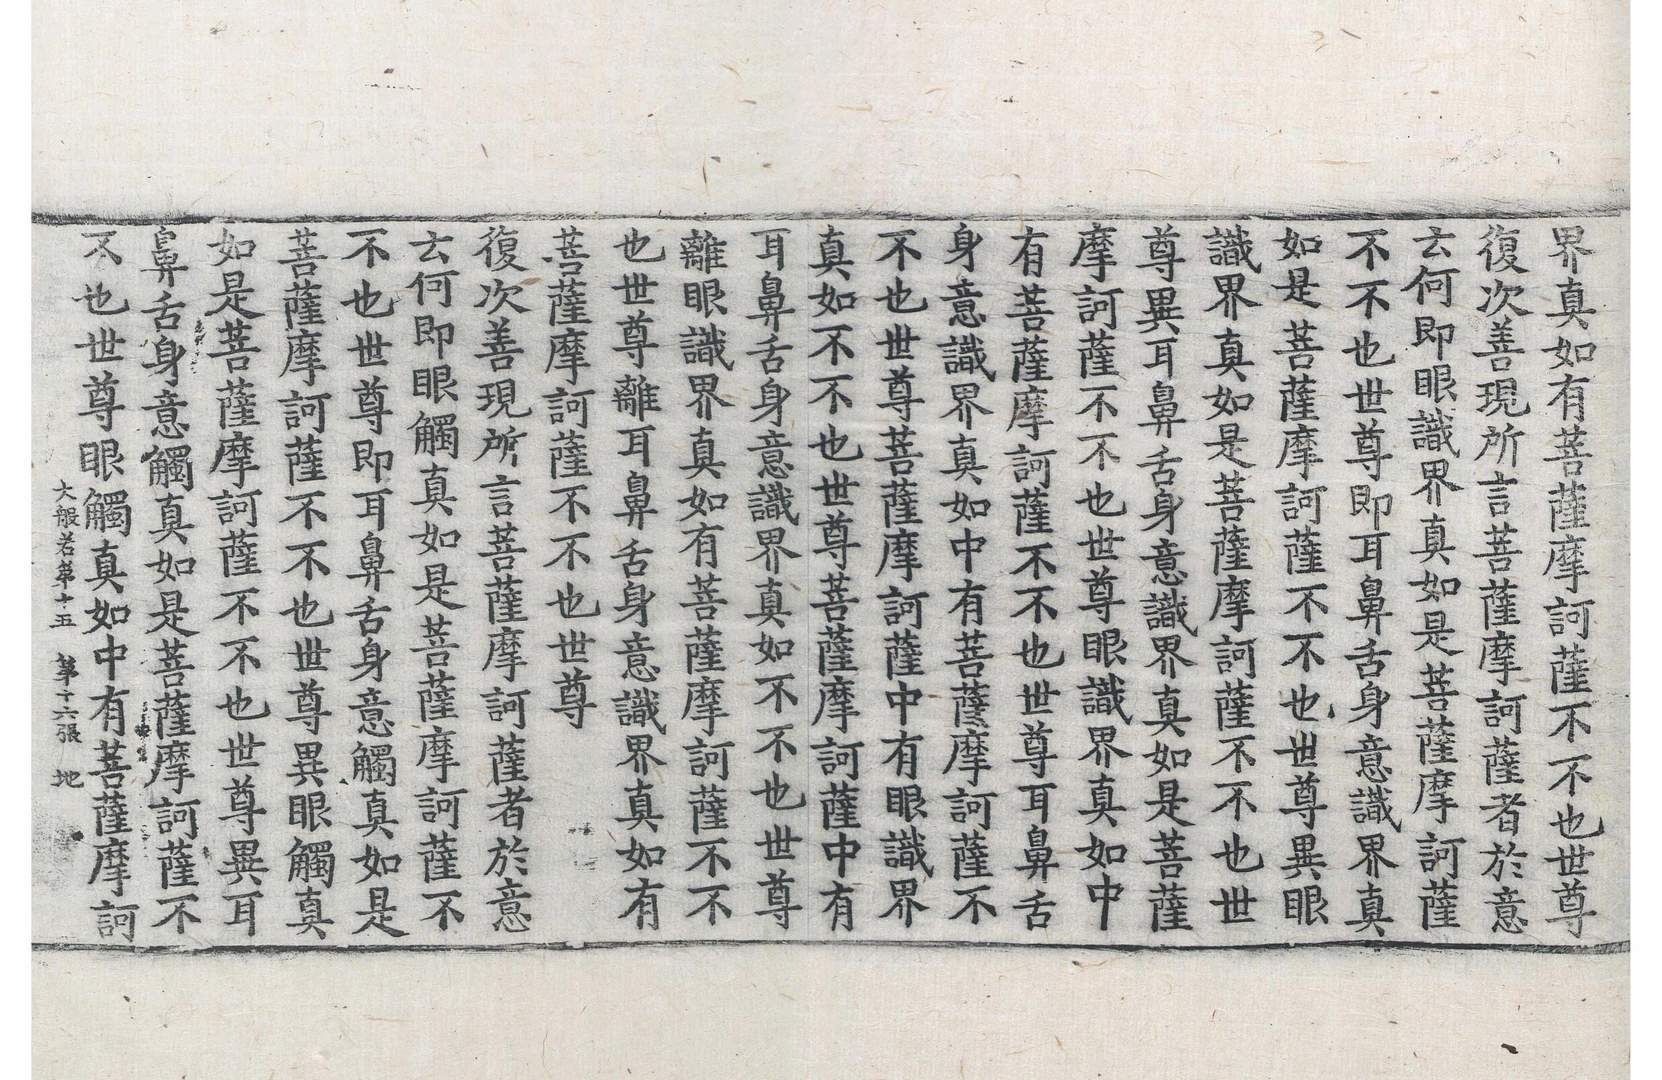 界真如有菩薩摩訶薩不不也世尊
復次善現所言菩薩摩訶薩者於意
云何即眼識界真如是菩薩摩訶薩
不不也世尊即耳鼻舌身意識界真
如是菩薩摩訶薩不不也世尊異眼
識界真如是菩薩摩訶薩不不也世
尊異耳鼻舌身意識界真如是菩薩
摩訶薩不不也世尊眼識界真如中
有菩薩摩訶薩不不也世尊耳鼻舌
身意識界真如中有菩薩摩訶薩不
不也世尊菩薩摩訶薩中有眼識界
真如不不也世尊菩薩摩訶薩中有
耳鼻舌身意識界真如不不也世尊
離眼識界真如有菩薩摩訶薩不不
也世尊離耳鼻舌身意識界真如有
菩薩摩訶薩不不也世尊
復次善現所言菩薩摩訶薩者於意
云何即眼觸真如是菩薩摩訶薩不
不也世尊即耳鼻舌身意觸真如是
菩薩摩訶薩不不也世尊異眼觸真
如是菩薩摩訶薩不不也世尊異耳
鼻舌身意觸真如是菩薩摩訶薩不
不也世尊眼觸真如中有菩薩摩訶
大般若第十五 第十六張 地